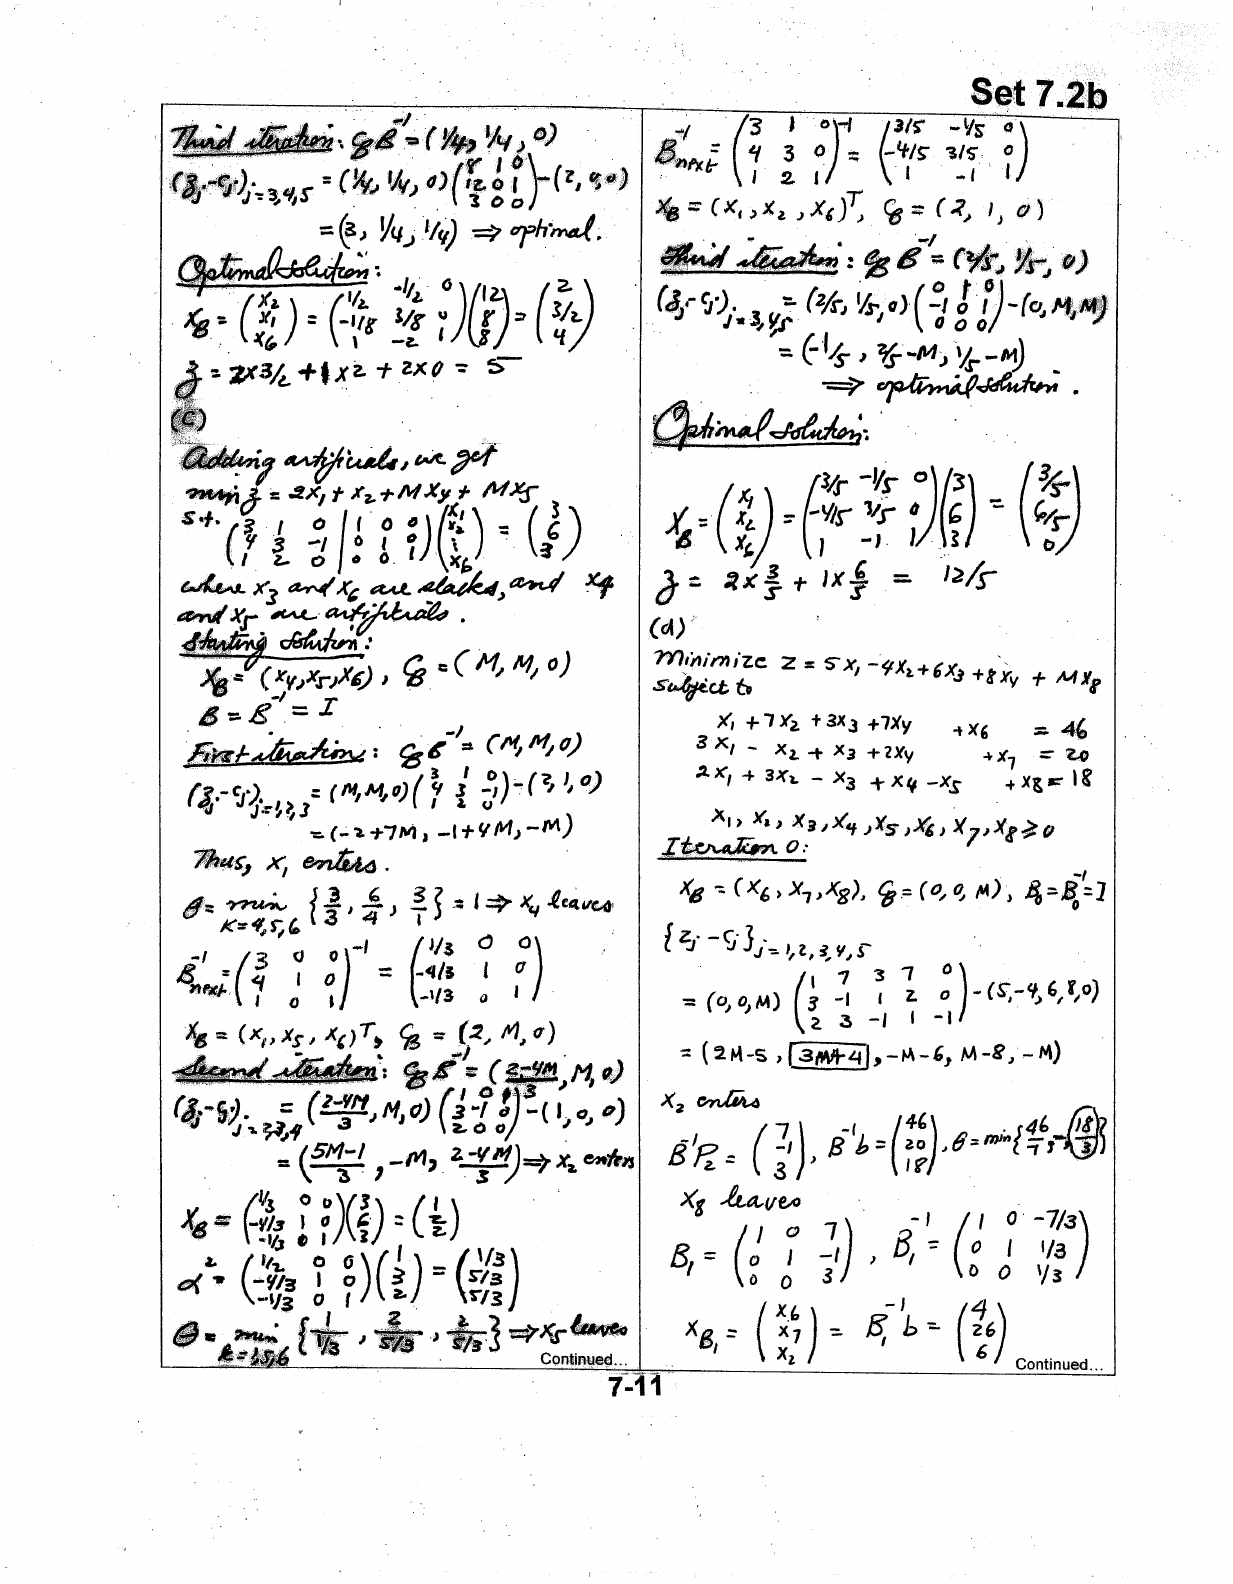 Set 7.2b
Third iteration: C_B B^-1 = (1/4, 1/4, 0)
(z_j - c_j)_{j=3,4,5} = (1/4, 1/4, 0) (8 1 0 / 12 0 1 / 3 0 0) - (2, 0, 0)
= (3, 1/4, 1/4) ⇒ optimal.
Optimal solution:
X_B = (x2 / x1 / x6) = (1/2 -1/2 0 / -1/8 3/8 0 / 1 -2 1) (12 / 8 / 8) = (2 / 3/2 / 4)
z = 2x3/2 + 1x2 + 2x0 = 5
(c)
Adding artificials, we get
min z = 2x1 + x2 + Mx4 + Mx5
s.t. (3 1 0 | 1 0 0 / 4 3 -1 | 0 1 0 / 1 2 0 | 0 0 1) (x1 / x2 / ⋮ / x6) = (3 / 6 / 3)
where x3 and x6 are slacks, and x4
and x5 are artificials.
Starting solution:
X_B = (x4, x5, x6), C_B = (M, M, 0)
B = B^-1 = I
First iteration: C_B B^-1 = (M, M, 0)
(z_j - c_j)_{j=1,2,3} = (M, M, 0) (3 1 0 / 4 3 -1 / 1 2 0) - (2, 1, 0)
= (-2+7M, -1+4M, -M)
Thus, x1 enters.
θ = min_{k=4,5,6} {3/3, 6/4, 3/1} = 1 ⇒ x4 leaves
B^-1_next = (3 0 0 / 4 1 0 / 1 0 1)^-1 = (1/3 0 0 / -4/3 1 0 / -1/3 0 1)
X_B = (x1, x5, x6)^T, C_B = (2, M, 0)
Second iteration: C_B B^-1 = ((2-4M)/3, M, 0)
(z_j - c_j)_{j=2,3,4} = ((2-4M)/3, M, 0) (1 0 1 / 3 -1 0 / 2 0 0) - (1, 0, 0)
= ((5M-1)/3, -M, (2-4M)/3) ⇒ x2 enters
X_B = (1/3 0 0 / -4/3 1 0 / -1/3 0 1) (3 / 6 / 3) = (1 / 2 / 2)
α^2 = (1/3 0 0 / -4/3 1 0 / -1/3 0 1) (1 / 3 / 2) = (1/3 / 5/3 / 5/3)
θ = min_{k=1,5,6} {1/(1/3), 2/(5/3), 2/(5/3)} ⇒ x5 leaves
Continued...
B^-1_next = (3 1 0 / 4 3 0 / 1 2 1)^-1 = (3/5 -1/5 0 / -4/5 3/5 0 / 1 -1 1)
X_B = (x1, x2, x6)^T, C_B = (2, 1, 0)
Third iteration: C_B B^-1 = (2/5, 1/5, 0)
(z_j - c_j)_{j=3,4,5} = (2/5, 1/5, 0) (0 1 0 / -1 0 1 / 0 0 0) - (0, M, M)
= (-1/5, 2/5-M, 1/5-M)
⇒ optimal solution.
Optimal solution:
X_B = (x1 / x2 / x6) = (3/5 -1/5 0 / -4/5 3/5 0 / 1 -1 1) (3 / 6 / 3) = (3/5 / 6/5 / 0)
z = 2x3/5 + 1x6/5 = 12/5
(d)
Minimize z = 5x1 - 4x2 + 6x3 + 8x4 + Mx8
subject to
x1 + 7x2 + 3x3 + 7x4 + x6 = 46
3x1 - x2 + x3 + 2x4 + x7 = 20
2x1 + 3x2 - x3 + x4 - x5 + x8 = 18
x1, x2, x3, x4, x5, x6, x7, x8 ≥ 0
Iteration 0:
X_B = (x6, x7, x8), C_B = (0, 0, M), B_0 = B_0^-1 = I
{z_j - c_j}_{j=1,2,3,4,5}
= (0, 0, M) (1 7 3 7 0 / 3 -1 1 2 0 / 2 3 -1 1 -1) - (5, -4, 6, 8, 0)
= (2M-5, 3M+4, -M-6, M-8, -M)
x2 enters
B^-1 P_2 = (7 / -1 / 3), B^-1 b = (46 / 20 / 18), θ = min{46/7, -, 18/3}
x8 leaves
B_1 = (1 0 7 / 0 1 -1 / 0 0 3), B_1^-1 = (1 0 -7/3 / 0 1 1/3 / 0 0 1/3)
X_B1 = (x6 / x7 / x2) = B_1^-1 b = (4 / 26 / 6)
Continued...
7-11